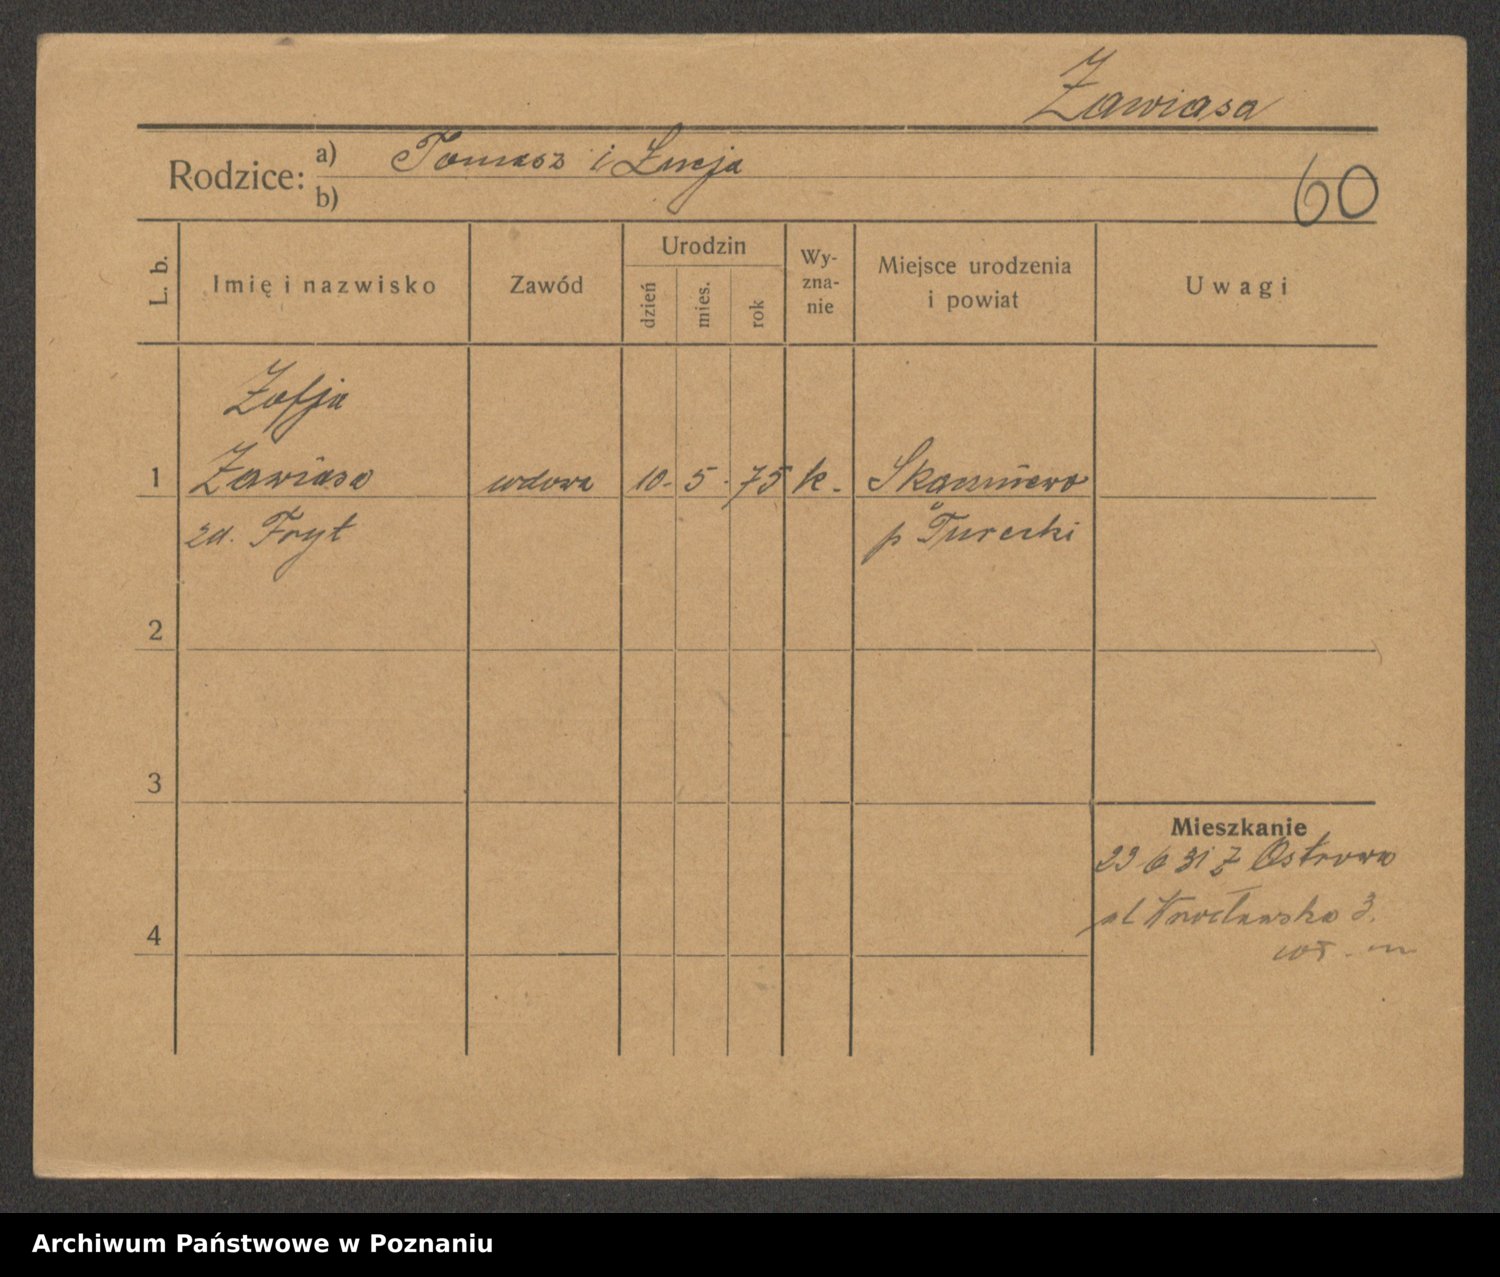 Zawiasa
Rodzice: a) Tomasz i Łucja
b)
60
L. b. Imię i nazwisko Zawód Urodzin dzień mies. rok Wy-zna-nie Miejsce urodzenia i powiat Uwagi
Zofja
1 Zawiasa wdowa 10. 5. 75 k.
zd. Fryt p Turecki
2
3
Mieszkanie
23 6 31 z Ostrowa
4 ul Wrocławska 3.
Archiwum Państwowe w Poznaniu